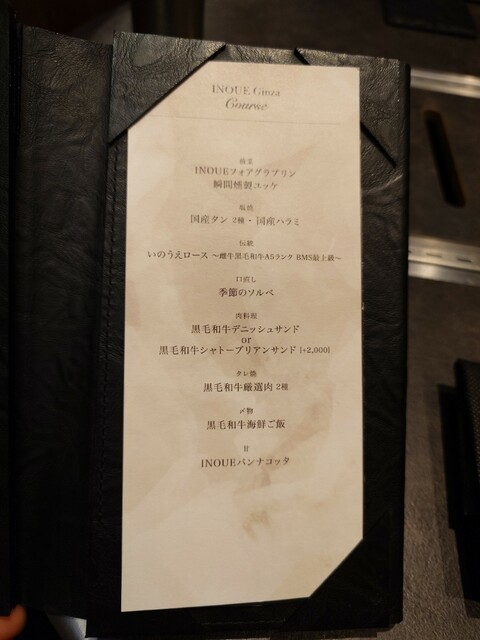 INOUE Ginza
Course
前菜
INOUEフォアグラプリン
瞬間燻製ユッケ
塩焼
国産タン 2種・国産ハラミ
伝統
いのうえロース ～雌牛黒毛和牛A5ランク BMS最上級～
口直し
季節のソルベ
肉料理
黒毛和牛デニッシュサンド
or
黒毛和牛シャトーブリアンサンド [+2,000]
タレ焼
黒毛和牛厳選肉 2種
〆物
黒毛和牛海鮮ご飯
甘
INOUEパンナコッタ